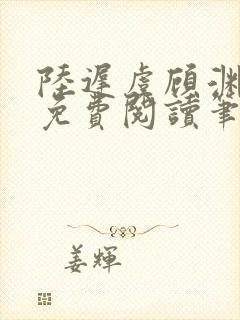 陸遲虔顾渊
免費閱讀筆
姜輝